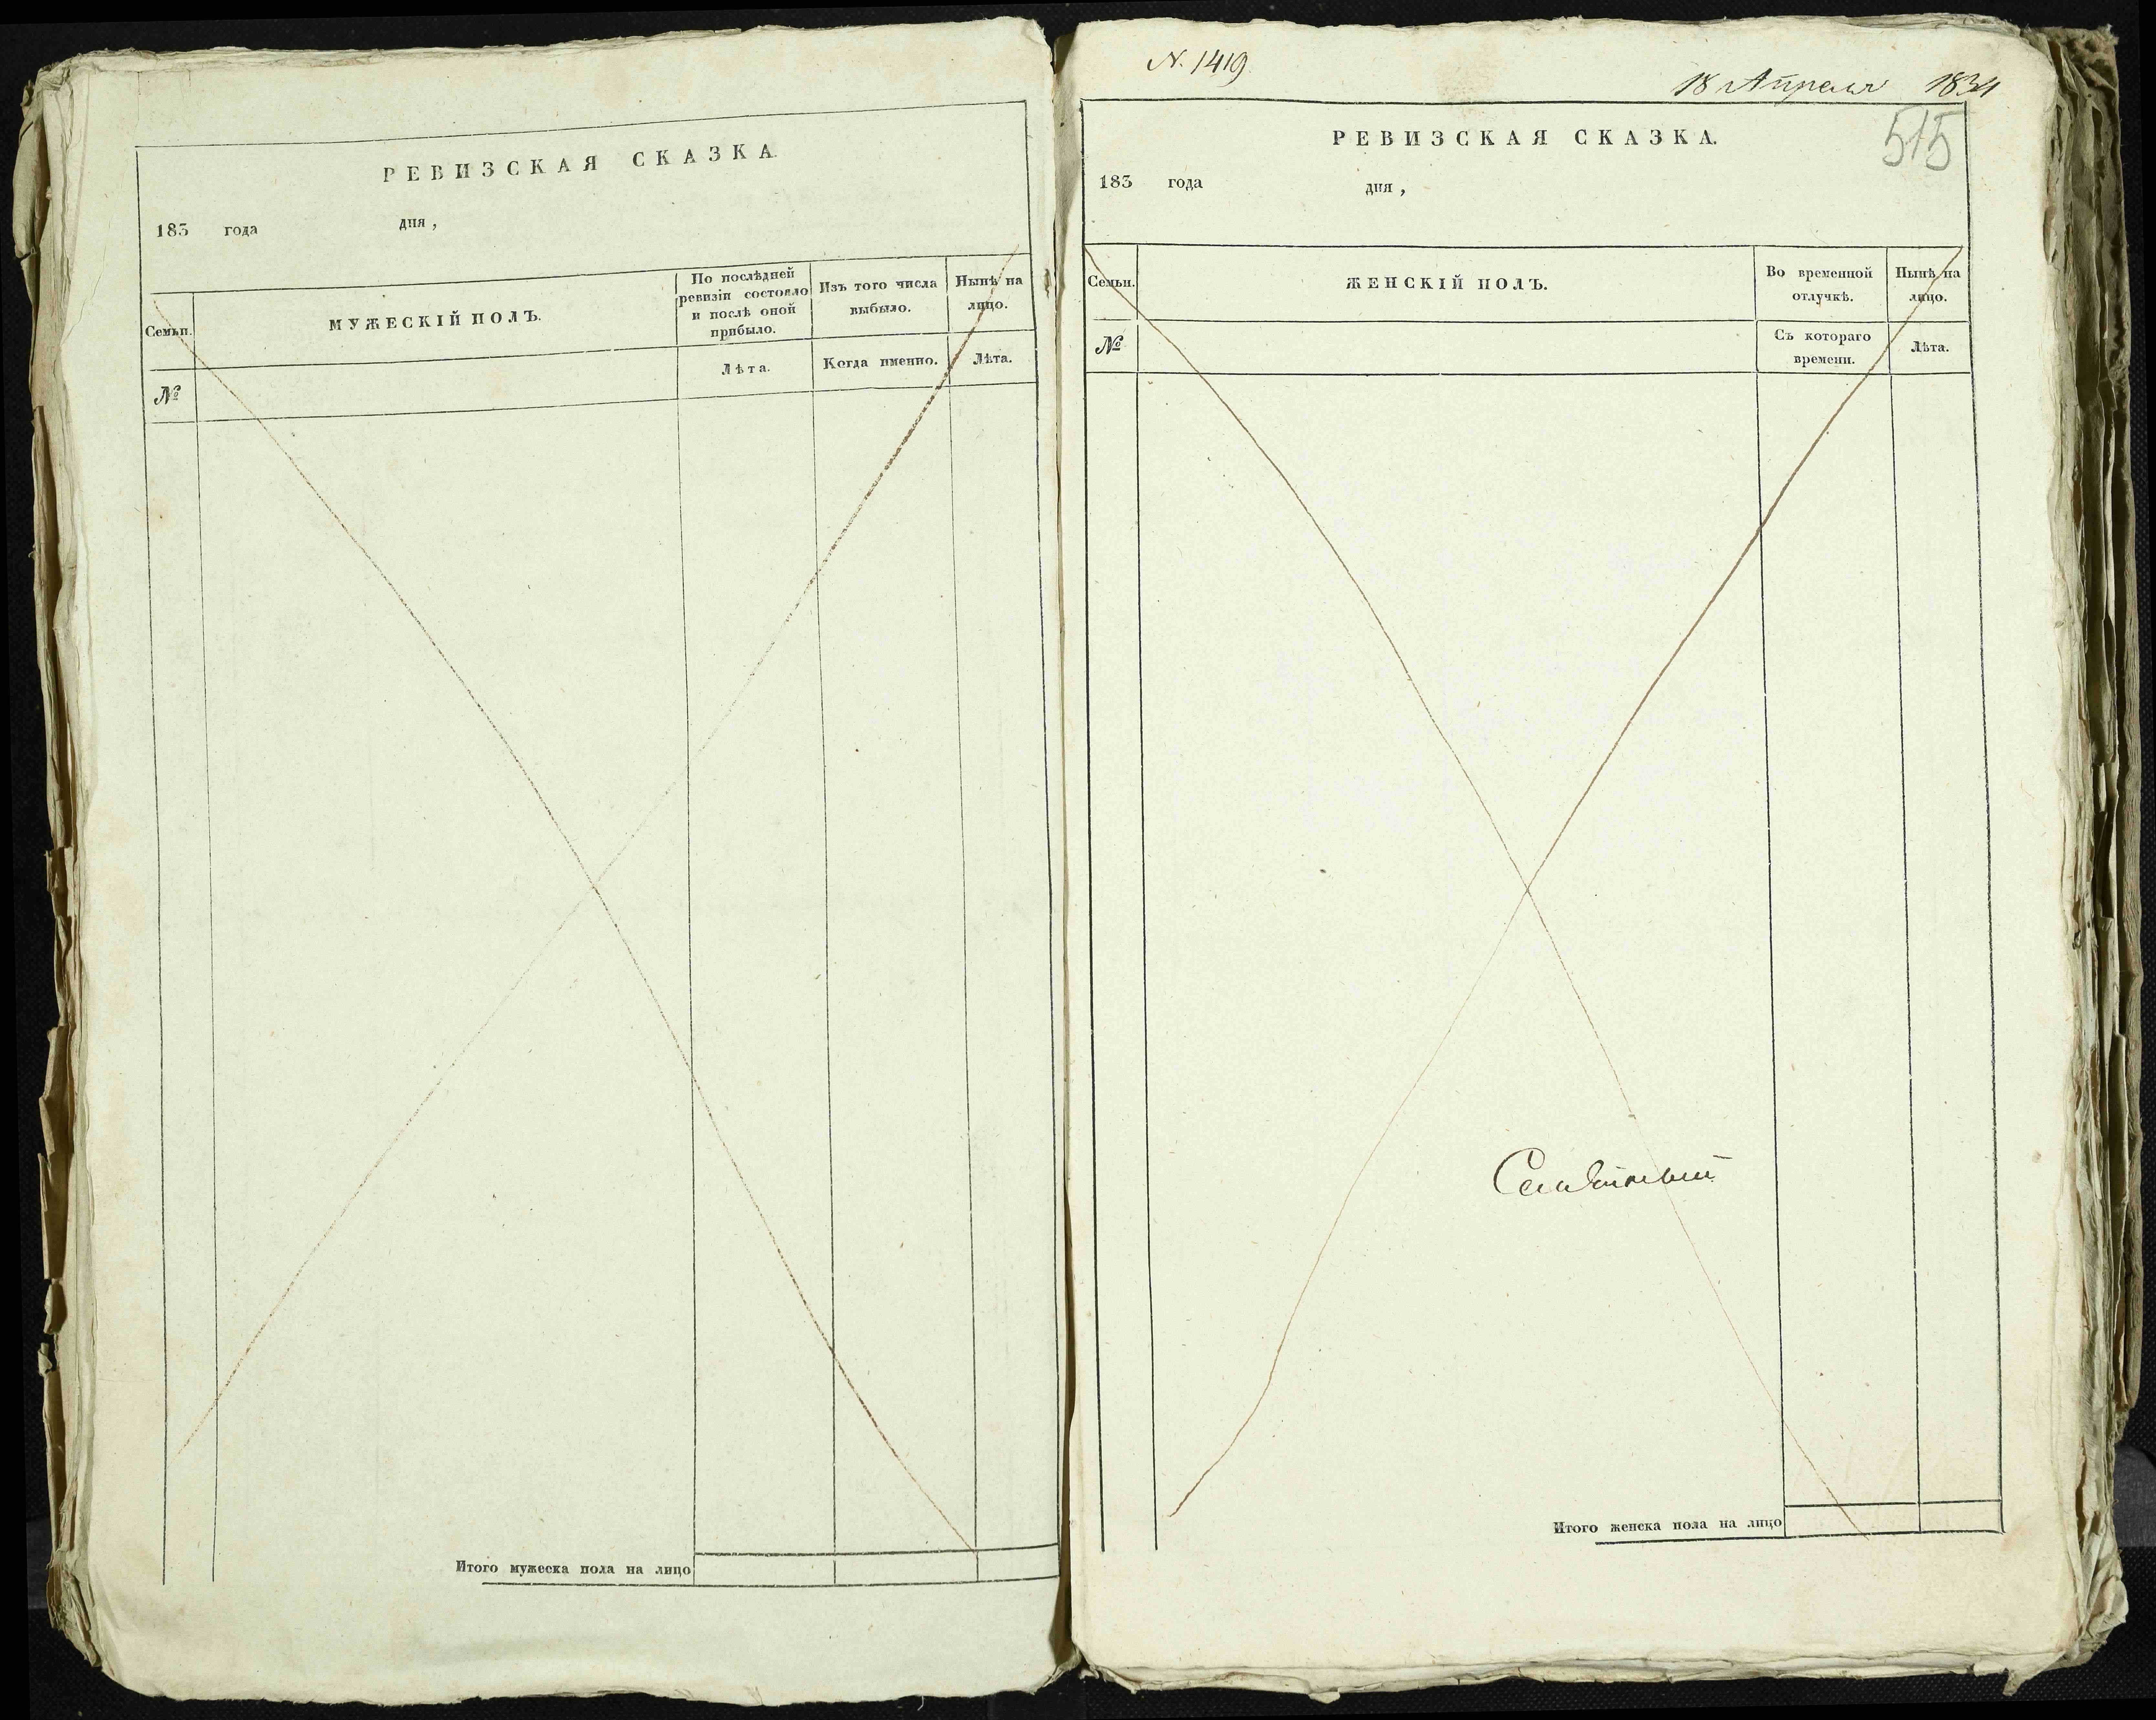 РЕВИЗСКАЯ СКАЗКА.
183 года дня,
Семьи.
МУЖЕСКІЙ ПОЛЪ.
По послѣдней
ревизіи состояло
и послѣ оной
прибыло.
Изъ того числа
выбыло.
Нынѣ на
лицо.
№
Лѣта.
Когда именно.
Лѣта.
Итого мужеска пола на лицо
N. 1419
18 Апреля 1834
515
РЕВИЗСКАЯ СКАЗКА.
183 года дня,
Семьи.
ЖЕНСКІЙ ПОЛЪ.
Во временной
отлучкѣ.
Нынѣ на
лицо.
№
Съ котораго
времени.
Лѣта.
Итого женска пола на лицо